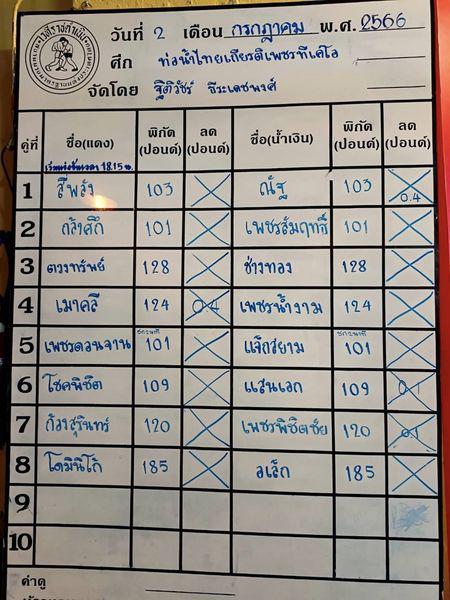 วันที่ 2 เดือน กรกฎาคม พ.ศ. 2566
ศึก ท่อน้ำไทยเกียรติเพชรทีเคโอ
จัดโดย ฐิติวัชร์ ธีระเดชพงศ์
คู่ที่ ชื่อ(แดง) พิกัด (ปอนด์) ลด (ปอนด์) ชื่อ(น้ำเงิน) พิกัด (ปอนด์) ลด (ปอนด์)
เริ่มแข่งขันเวลา 18.15 น.
1 สี่พลัง 103 ณัฐ 103 0.4
2 กล้าศึก 101 เพชรสัมฤทธิ์ 101
3 ตวงทรัพย์ 128 ช่างทอง 128
4 เมาคลี 124 0.4 เพชรน้ำงาม 124
5 เพชรดอนจาน 101 แจ็กสยาม 101
6 โชคพิชิต 109 แสนเอก 109 0.1
7 ก้องสุรินทร์ 120 เพชรพิชิตชัย 120 0.1
8 โดมินิโก้ 185 อเล็ก 185
9
10
ค่าดู